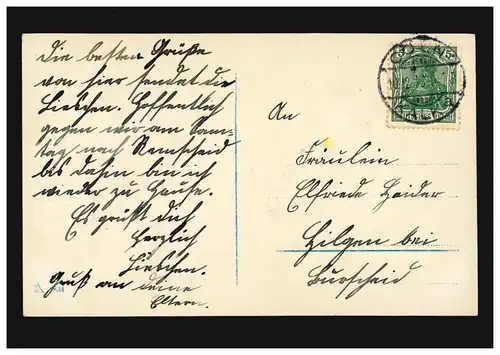 Die besten Grüße
von hier sendet die
Lieschen. Hoffentlich
gegen wir am Sams-
tag nach Remscheid
bis dahin bin ich
wieder zu Hause.
Es grüßt dich
herzlich
Lieschen.
Gruß an deine
Eltern.
An
Fräulein
Elfriede Haider
Hilgen bei
Burscheid